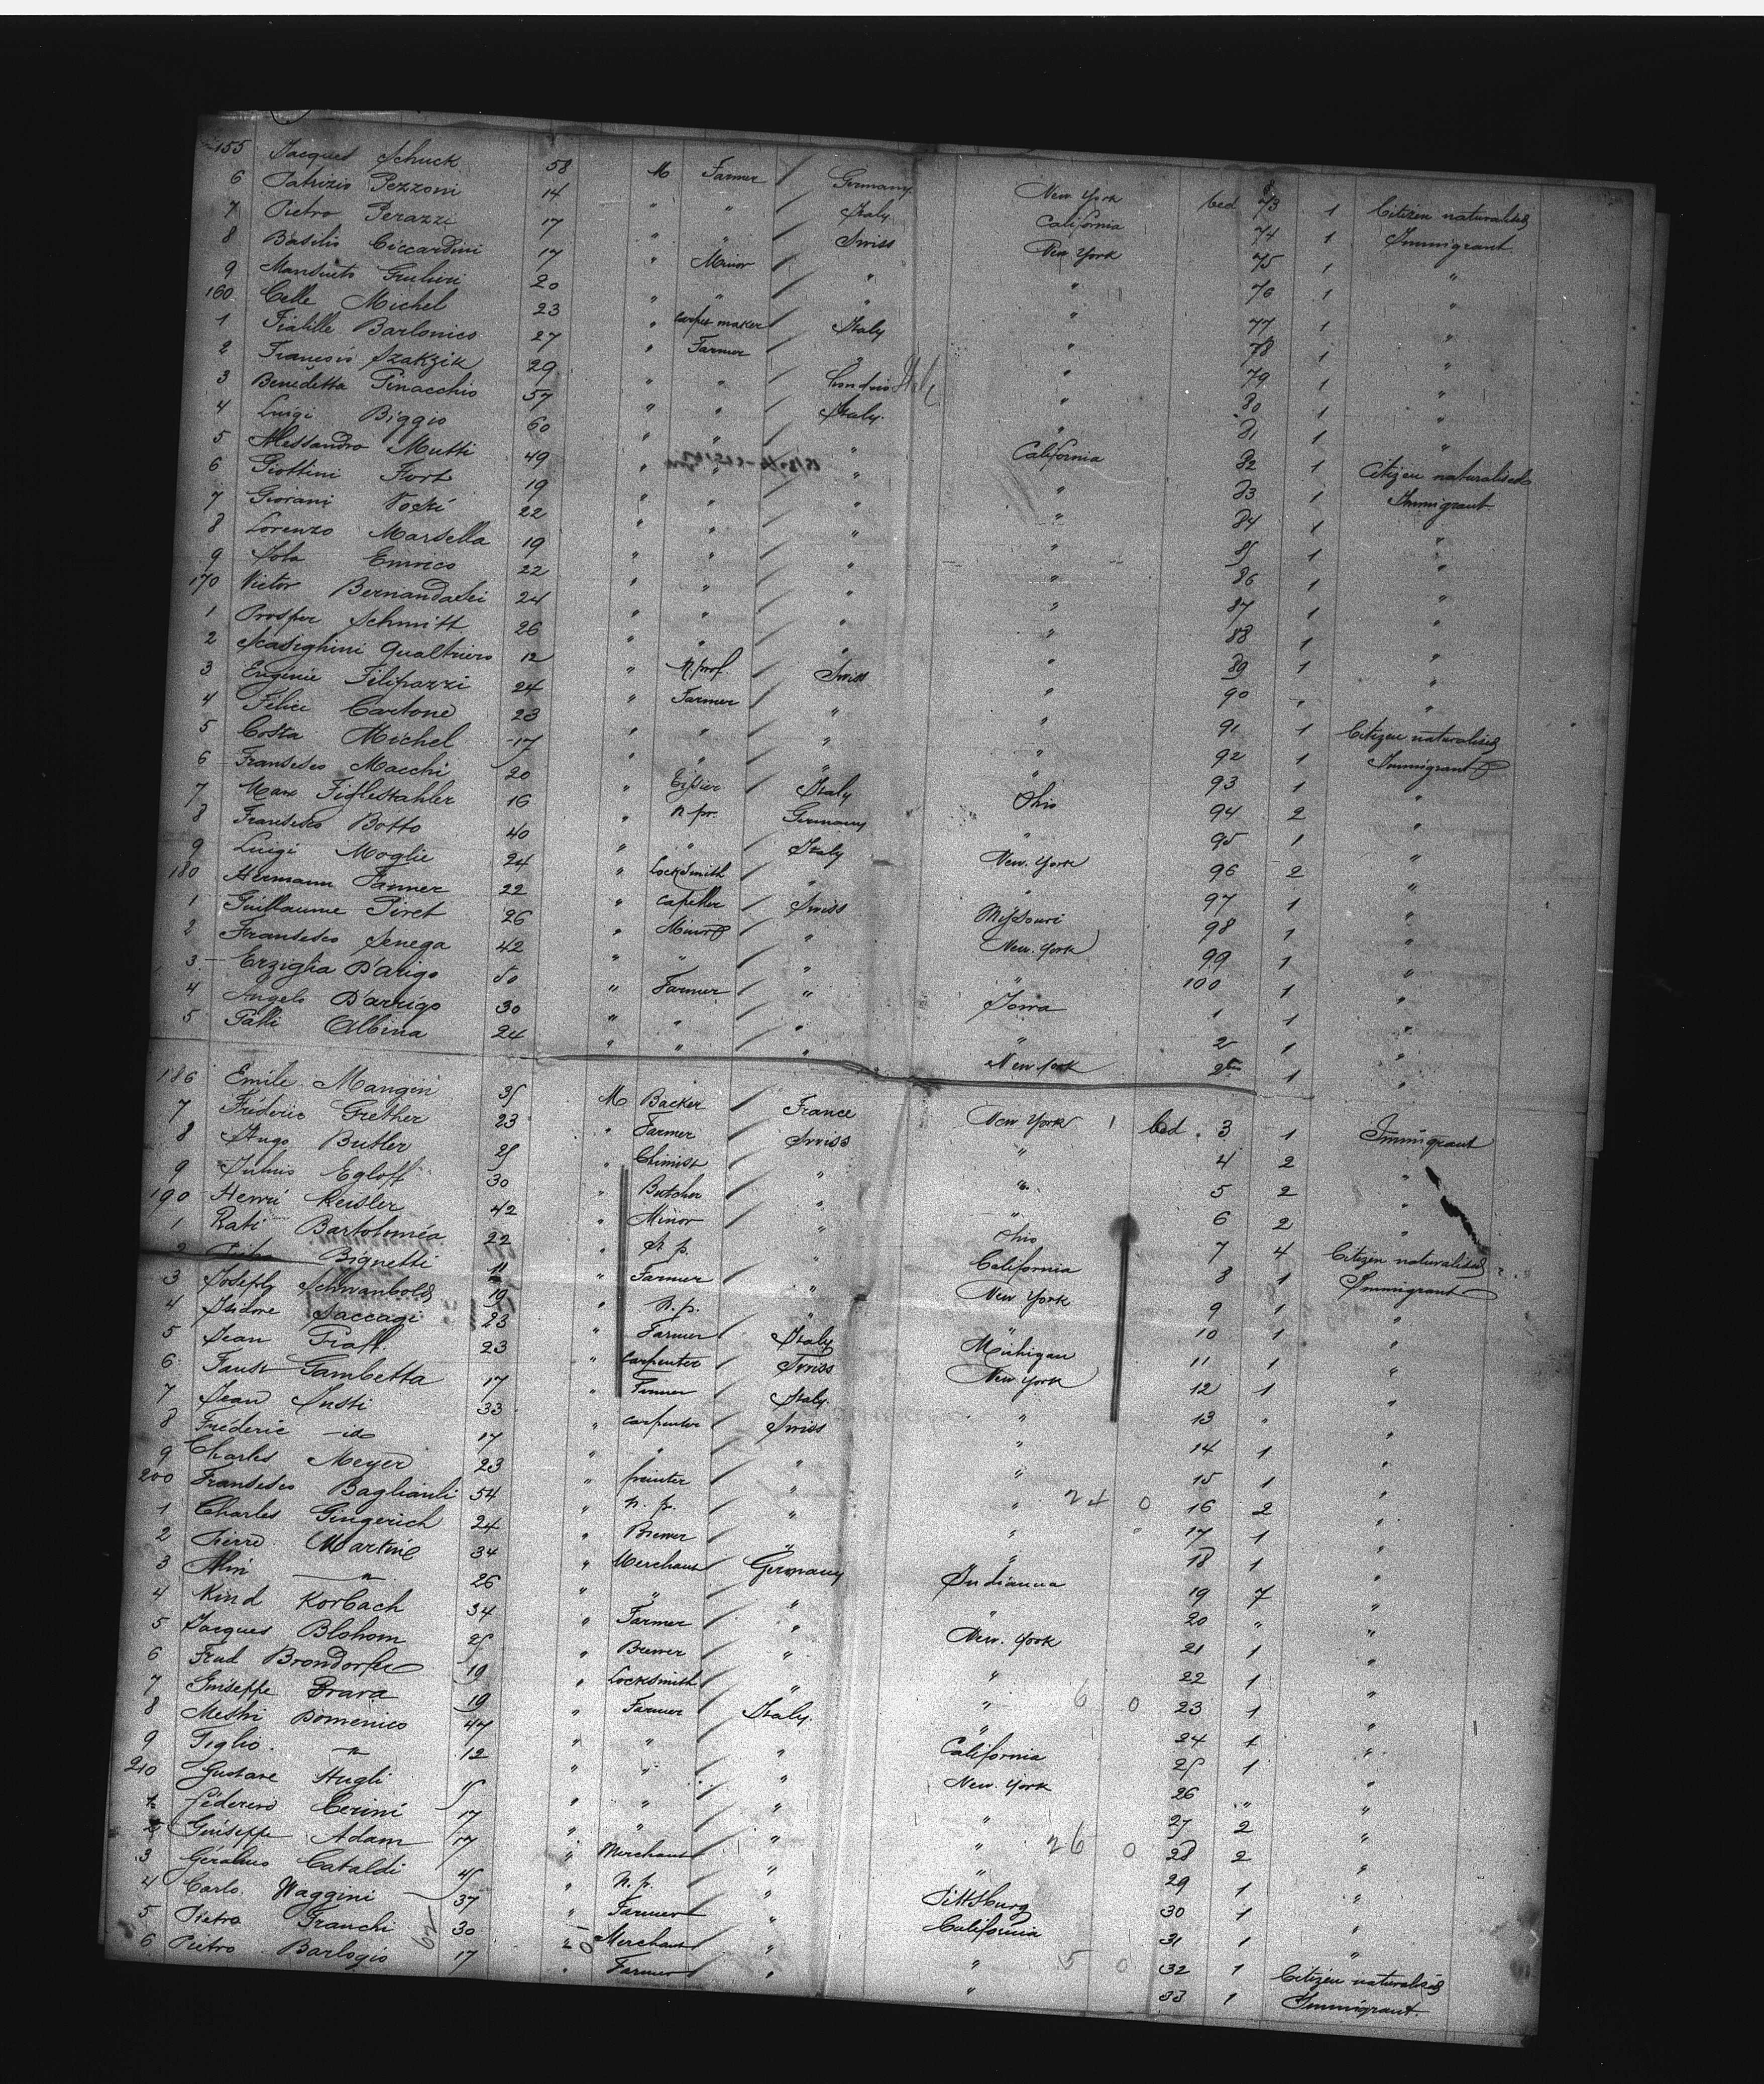 155 Jacques Schuck 58 M Farmer / Germany New York bed 73 1 Citizen naturalised
6 Patrizio Pezzoni 14 " " / Italy California 74 1 Immigrant
7 Pietro Perazzi 17 " " / Swiss New York 75 1 "
8 Basilio Ciccardini 17 " Minor / " " 76 1 "
9 Mansueto Giulieri 20 " " / " " 77 1 "
160 Celle Michel 23 " carpet maker / Italy " 78 1 "
1 Fiatille Barlonico 27 " Farmer / " " 79 1 "
2 François Szakzik 29 " " / " 80 1 "
3 Benedetta Pinacchio 57 " " / Italy. " 81 1 "
4 Luigi Biggio 60 " " / " California 82 1 Citizen naturalised
5 Alessandro Mutti 49 " " / " " 83 1 Immigrant
6 Giottini Fort 19 " " / " " 84 1 "
7 Giovani 22 " " / " " 85 1 "
8 Lorenzo Marsella 19 " " / " " 86 1 "
9 Sola Enrico 22 " " / " " 87 1 "
170 Victor Bernandasci 24 " " / " " 88 1 "
1 Prosper Schmitt 26 " " / " " 89 1 "
2 Scasighini Qualtiero 12 " N. prof. / Swiss " 90 " "
3 Eugenie Filipazzi 24 " Farmer / " " 91 1 Citizen naturalised
4 Felice Cartone 23 " " / " " 92 1 Immigrant
5 Costa Michel 17 " " / " " 93 1 "
6 Fransesco Macchi 20 " / Italy Ohio 94 2 "
7 Max Figlestahler 16 " n. pr. / Germany " 95 1 "
8 Fransesco Botto 40 " " / Italy New. York 96 2 "
9 Luigi Moglie 24 " Locksmith / " " 97 1 "
180 Hermann Tanner 22 " / Swiss Missouri 98 1 "
1 Guillaume Piret 26 " Minor / " New. York 99 1 "
2 Fransesco Senega 42 " " / " " 100 1 "
3 Erziglia D'arigo 50 " Farmer / " Iowa 1 1 "
4 Angelo D'arrigo 30 " " / " " 2 1 "
5 Palli Albina 24 " " / " New York 1 "
186 Emile Mangin 35 M Backer / France New York bed. 3 1 Immigrant
7 Fréderic Grether 23 " Farmer / Swiss " 4 2 "
8 Hugo Butler 25 " Chimist / " " 5 2 "
9 Julius Egloff 30 " Butcher / " " 6 2 "
190 Henri Keisler 42 " Minor / " Ohio 7 4 Citizen naturalised
1 Rati Bartoloméa 22 " N. p. / " California 8 1 Immigrant
2 Pietro Bignetti 11 " Farmer / " New York 9 1 "
3 Joseph Schwanbold 19 " N. p. / " " 10 1 "
4 Isidore Saccagi 23 " Farmer / Italy Michigan 11 1 "
5 Jean Graff. 23 " Carpenter / Swiss New York 12 1 "
6 Faust Gambetta 17 " Farmer / Italy. " 13 " "
7 Jean Justi 33 " carpenter / Swiss " 14 1 "
8 Fréderic – id 17 " " / " " 15 1 "
9 Charles Meyer 23 " / " " 24 0 16 2 "
200 Fransesco Baglianli 54 " n. p. / " " 17 1 "
1 Charles Gingerich 24 " Brewer / " " 18 1 "
2 Pierre Martine 34 " Merchant / Germany Indianna 19 7 "
3 " 26 " " / " " 20 " "
4 Kind Korbach 34 " Farmer / " New. York 21 1 "
5 Jacques Blohom 25 " Brewer / " " 22 1 "
6 Brondorfer 19 " Locksmith / " " 6 0 23 1 "
7 Guiseppe Brava 19 " Farmer / Italy. " 24 1 "
8 Domenico 47 " " / " California 25 1 "
9 Figlio. " 12 " " / " New. York 26 " "
210 Gustave Hugli 15 " " / " " 27 2 "
1 Féderico Cerini 17 " " / " " 26 0 28 2 "
2 Guiseppe Adam 17 " Merchant / " " 29 1 "
3 Cataldi 45 " N. p. / " Pittsburg 30 1 "
4 Carlo. Waggini 37 " Farmer / " California 31 1 "
5 Pietro Franchi 30 " Merchant / " " 5 0 32 1 Citizen naturalised
6 Pietro Barlogio 17 " Farmer / " " 33 1 Immigrant.